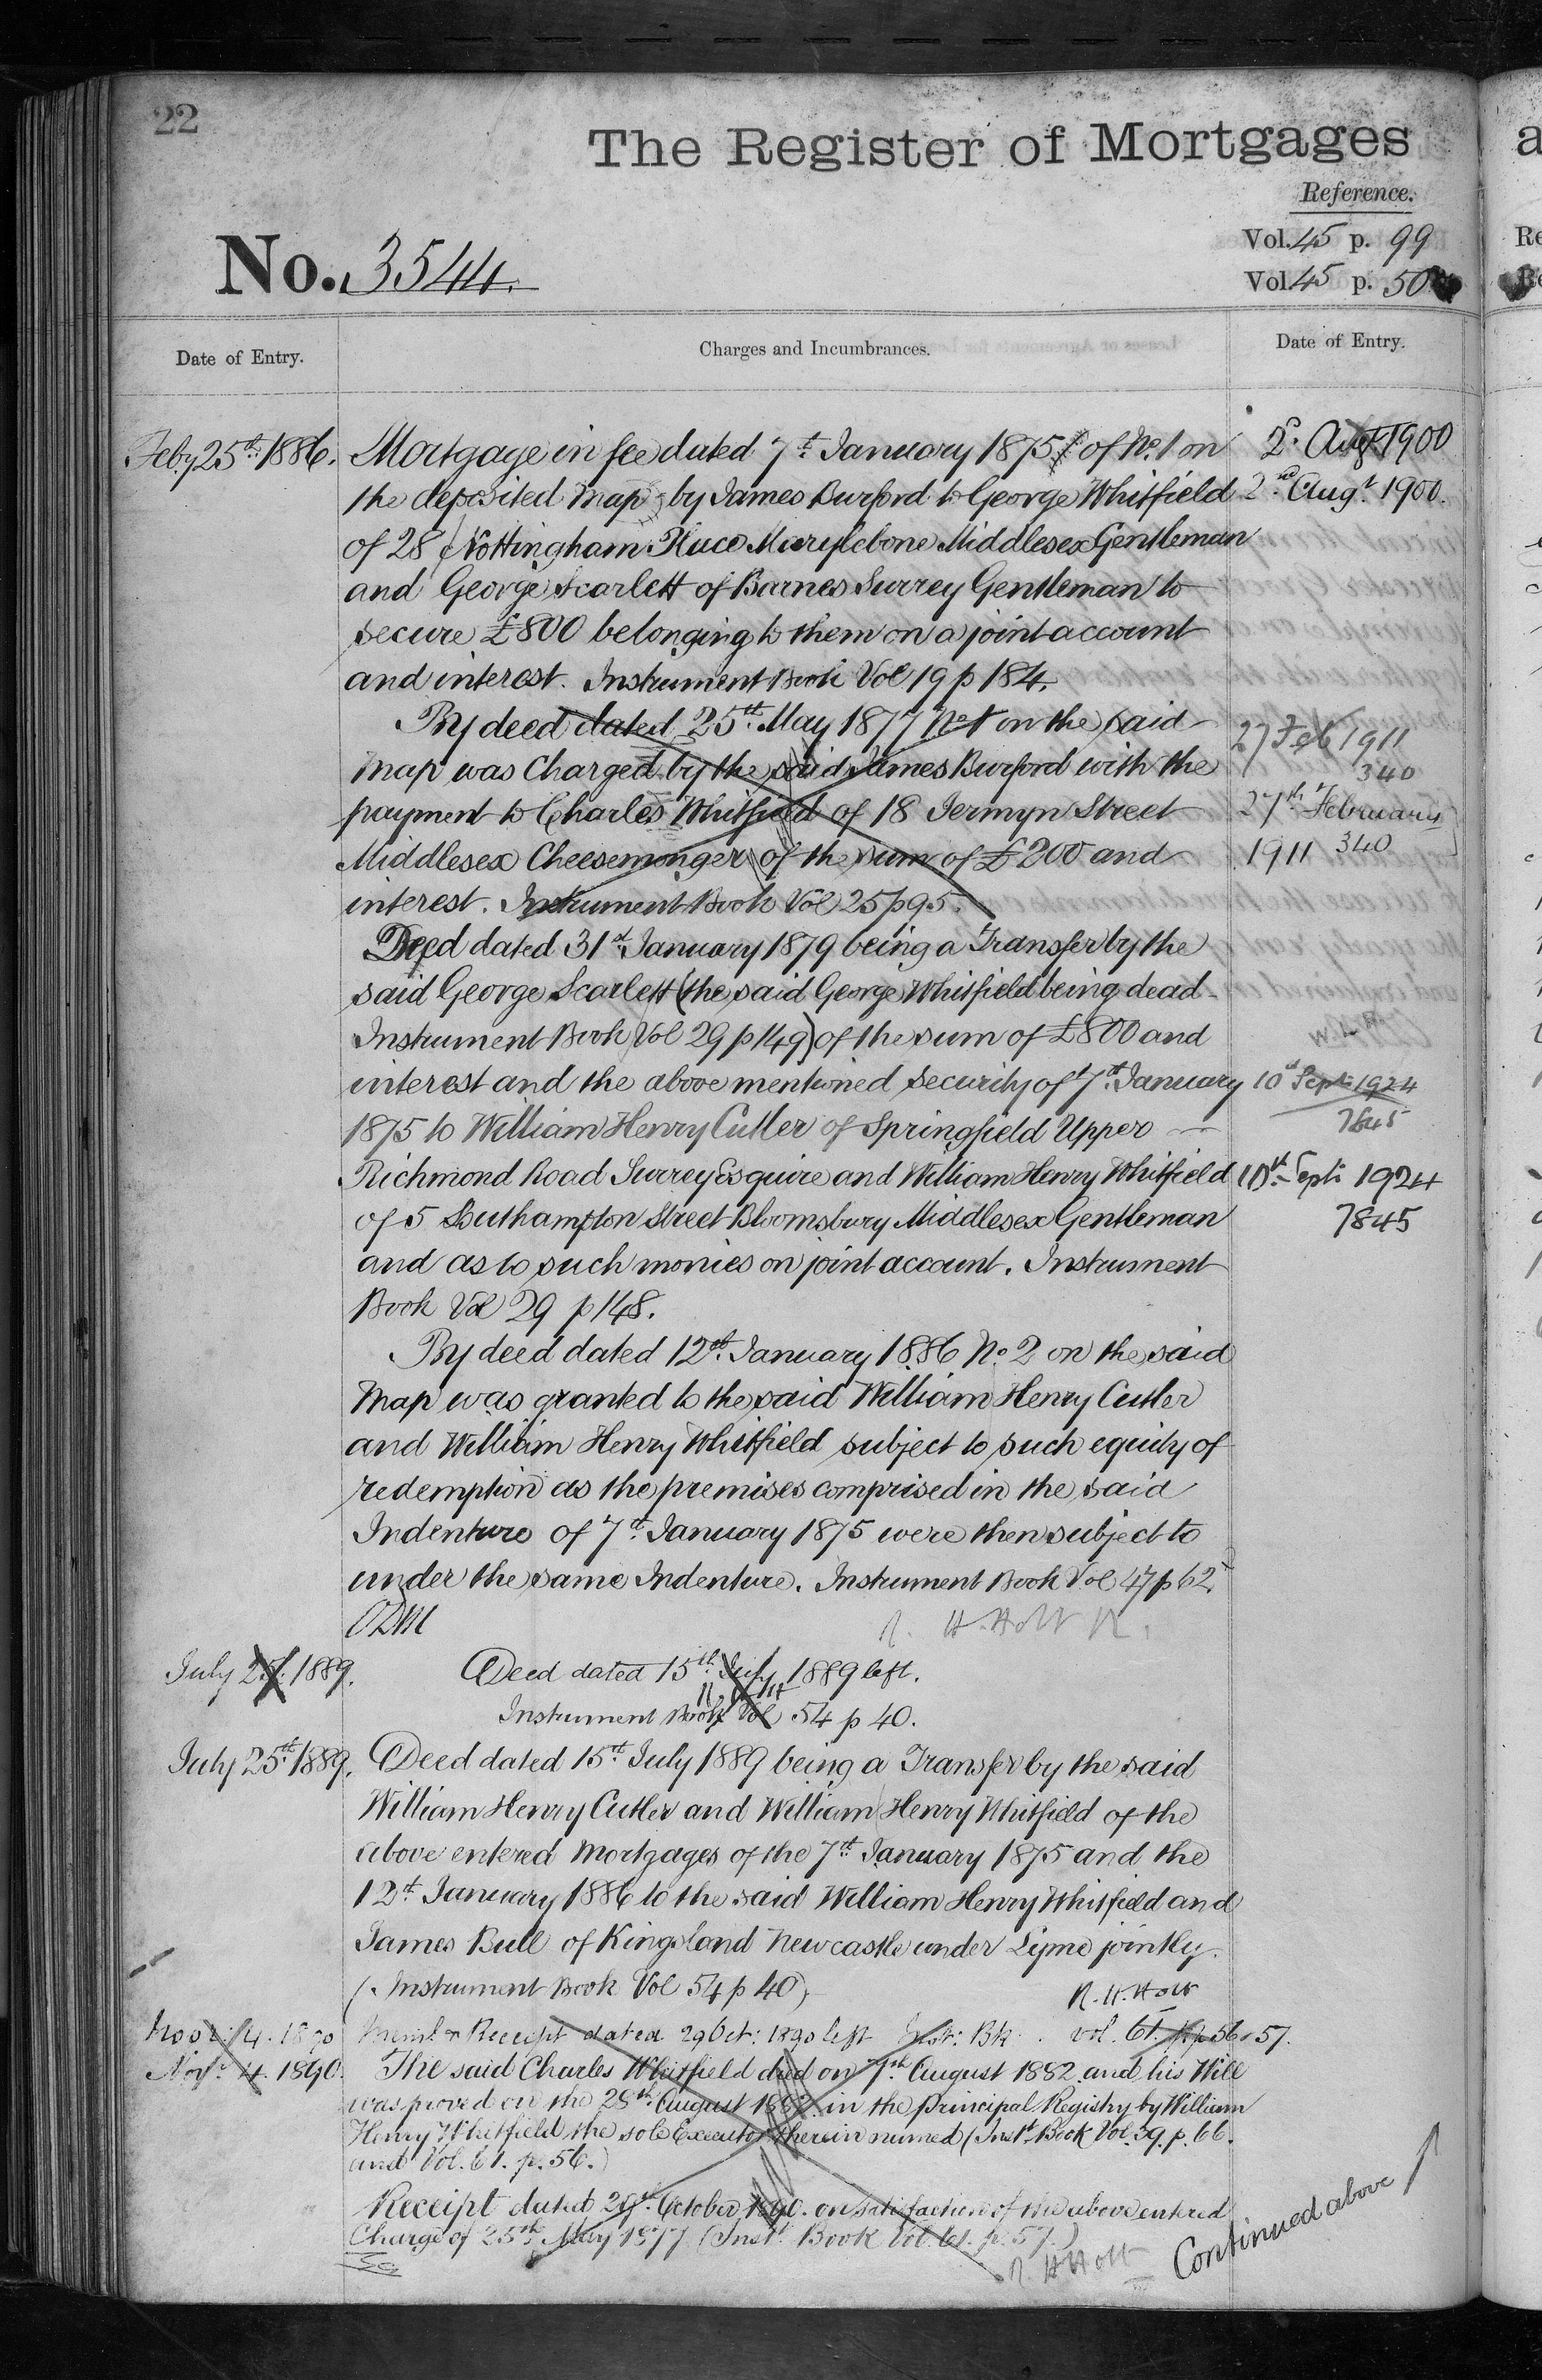 22
The Register of Mortgages
Reference.
No. 3544.
Vol. 45 p. 99
Vol. 45 p. 50
Date of Entry.
Charges and Incumbrances.
Date of Entry.
Feby 25th 1886.
Mortgage in fee dated 7th January 1875 of No. 1 on
the deposited Map by James Burford to George Whitfield
of 28 Nottingham Place Marylebone Middlesex Gentleman
and George Scarlett of Barnes Surrey Gentleman to
secure £800 belonging to them on a joint account
and interest. Instrument Book Vol 19 p 184.
By deed dated 25th May 1877 No 1 on the said
Map was Charged by the said James Burford with the
payment to Charles Whitfield of 18 Jermyn Street
Middlesex Cheesemonger of the sum of £200 and
interest. Instrument Book Vol 25 p 95.
Deed dated 31st January 1879 being a Transfer by the
said George Scarlett (the said George Whitfield being dead
Instrument Book Vol 29 p 149) of the sum of £800 and
interest and the above mentioned security of 7th January
1875 to William Henry Cutler of Springfield Upper
Richmond Road Surrey Esquire and William Henry Whitfield
of 5 Southampton Street Bloomsbury Middlesex Gentleman
and as to such monies on joint account. Instrument
Book Vol 29 p 148.
By deed dated 12th January 1886 No. 2 on the said
Map was granted to the said William Henry Cutler
and William Henry Whitfield subject to such equity of
redemption as the premises comprised in the said
Indenture of 7th January 1875 were then subject to
under the same Indenture. Instrument Book Vol 47 p 62.
R. H. Holt R.
July 25th 1889.
Deed dated 15th July 1889 left.
Instrument Book Vol 54 p 40.
July 25th 1889.
Deed dated 15th July 1889 being a Transfer by the said
William Henry Cutler and William Henry Whitfield of the
above entered Mortgages of the 7th January 1875 and the
12th January 1886 to the said William Henry Whitfield and
James Bull of Kingsland Newcastle under Lyme jointly.
(Instrument Book Vol 54 p 40)
R. H. Holt
Nov: 4. 1890
Meml & Receipt dated 29 Oct: 1890 left Inst: Bk. vol. 61. pp 56 & 57.
Novr. 4. 1890.
The said Charles Whitfield died on 7th August 1882 and his Will
was proved on the 28th August 1882 in the Principal Registry by William
Henry Whitfield the sole Executor therein named (Inst. Book Vol. 39. p. 66.
and Vol. 61. p. 56.)
Receipt dated 29th October 1890. on satisfaction of the above entered
Charge of 25th May 1877 (Inst. Book Vol. 61. p. 57.)
R. H. Holt
Continued above
2d. Augt 1900
2nd Augt. 1900.
27 Feb 1911
340
27th February
1911 340
10th Sept 1924
7845
10th Sept. 1924
7845